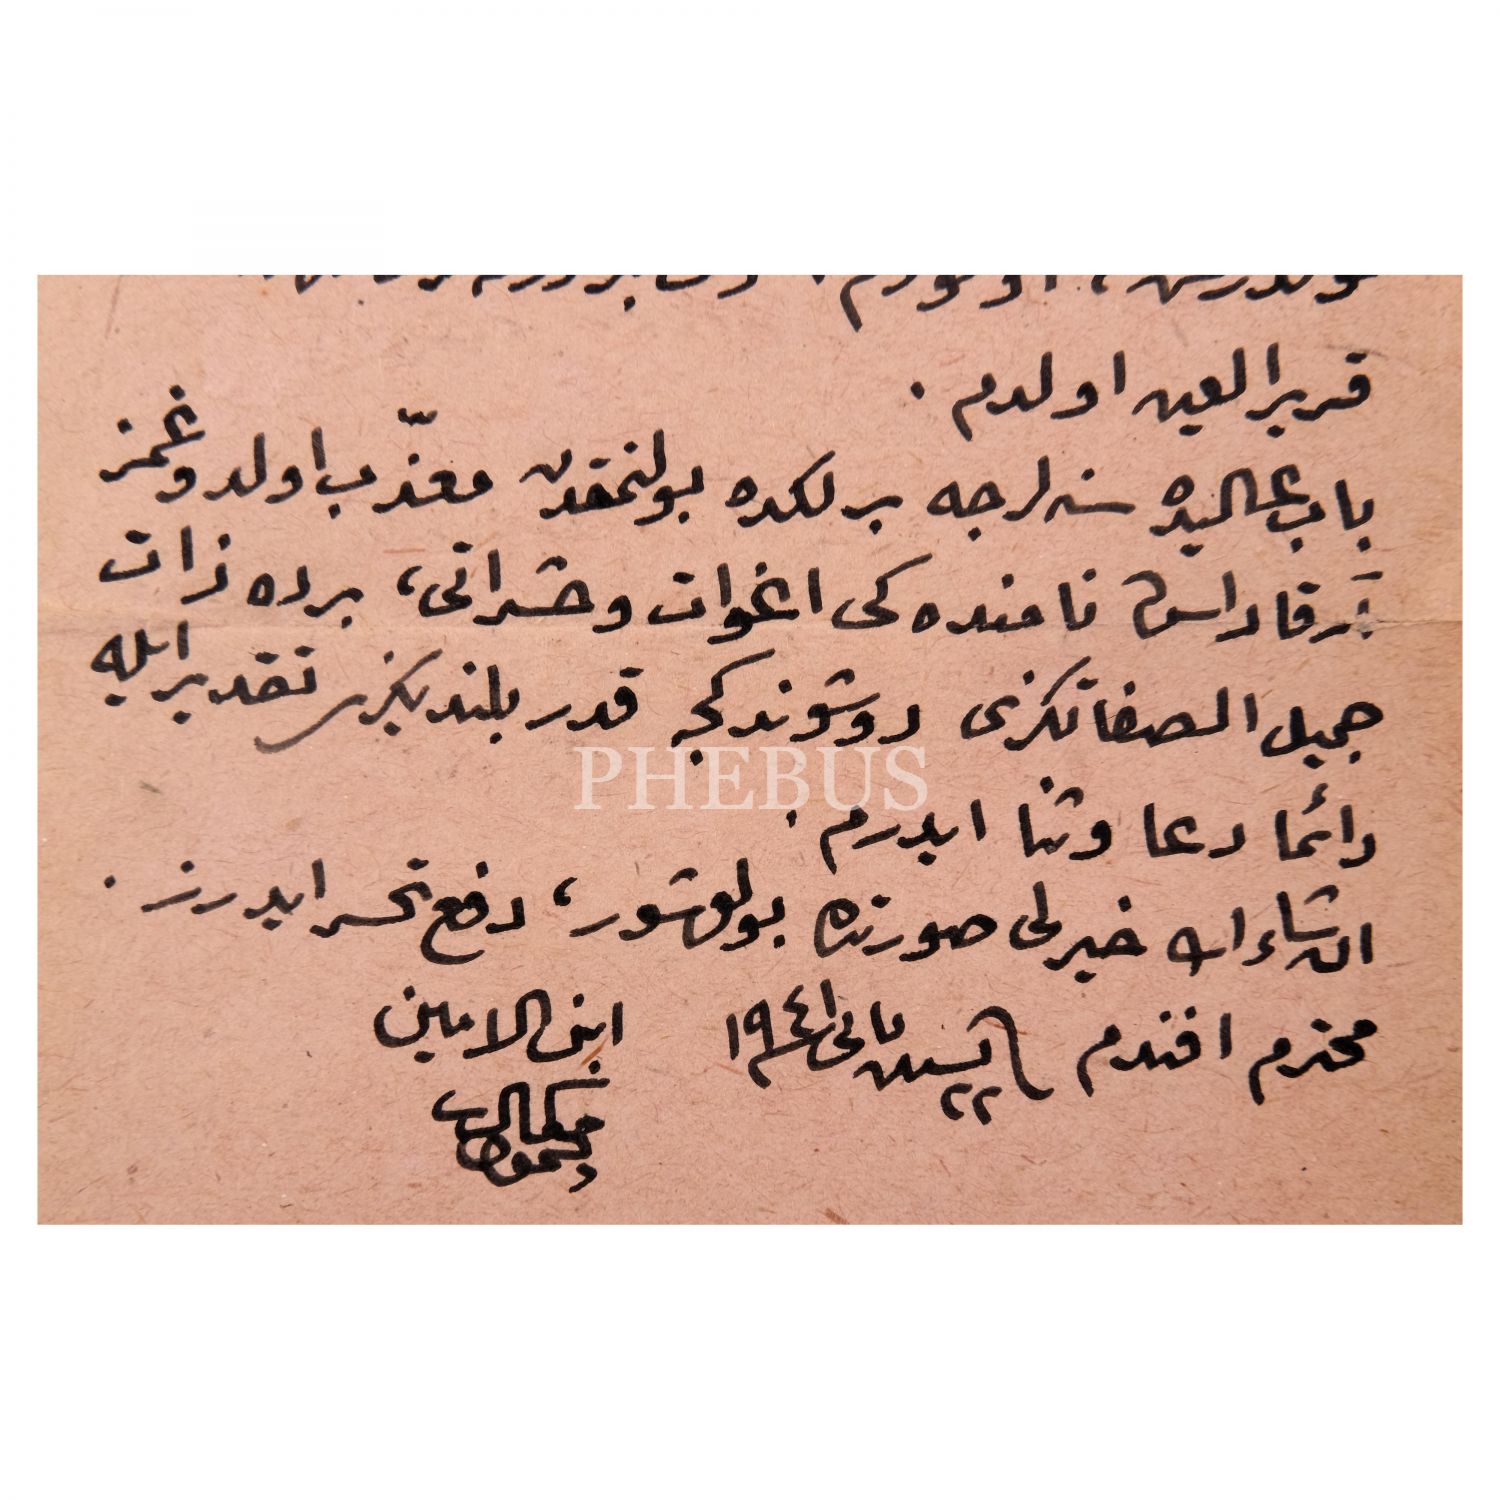 قرير العين اولدم .
باب عاليده سنه لرجه برلكده بولنمقدن معذّب اولدوغمز
آرقاداش نامنده كى اغوات وحشراتى، برده ذات
جميل الصفاتكزى دوشوندكجه قدر بلندیكزى تقدير ايله
دائما دعا وثنا ايدرم .
ان شاء الله خيرلى صورتده بولوشور، دفع تحسر ايدرز .
محترم افندم ٢٢ نيسان ١٩٤١ ابن الامين
محمود كمال
PHEBUS